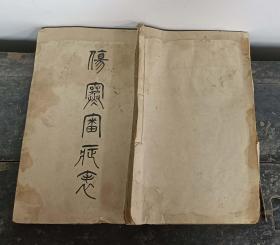 傷寒審症表